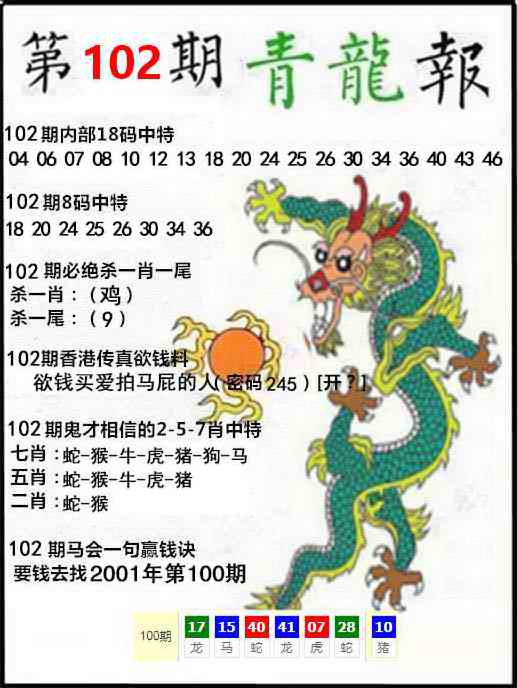 第102期青龍報
102期内部18码中特
04 06 07 08 10 12 13 18 20 24 25 26 30 34 36 40 43 46
102期8码中特
18 20 24 25 26 30 34 36
102 期必绝杀一肖一尾
杀一肖：（鸡）
杀一尾：（9）
102期香港传真欲钱料
欲钱买爱拍马屁的人（密码245）[开？]
102期鬼才相信的2-5-7肖中特
七肖：蛇-猴-牛-虎-猪-狗-马
五肖：蛇-猴-牛-虎-猪
二肖：蛇-猴
102 期马会一句赢钱诀
要钱去找2001年第100期
100期 17 15 40 41 07 28 10
龙 马 蛇 龙 虎 蛇 猪